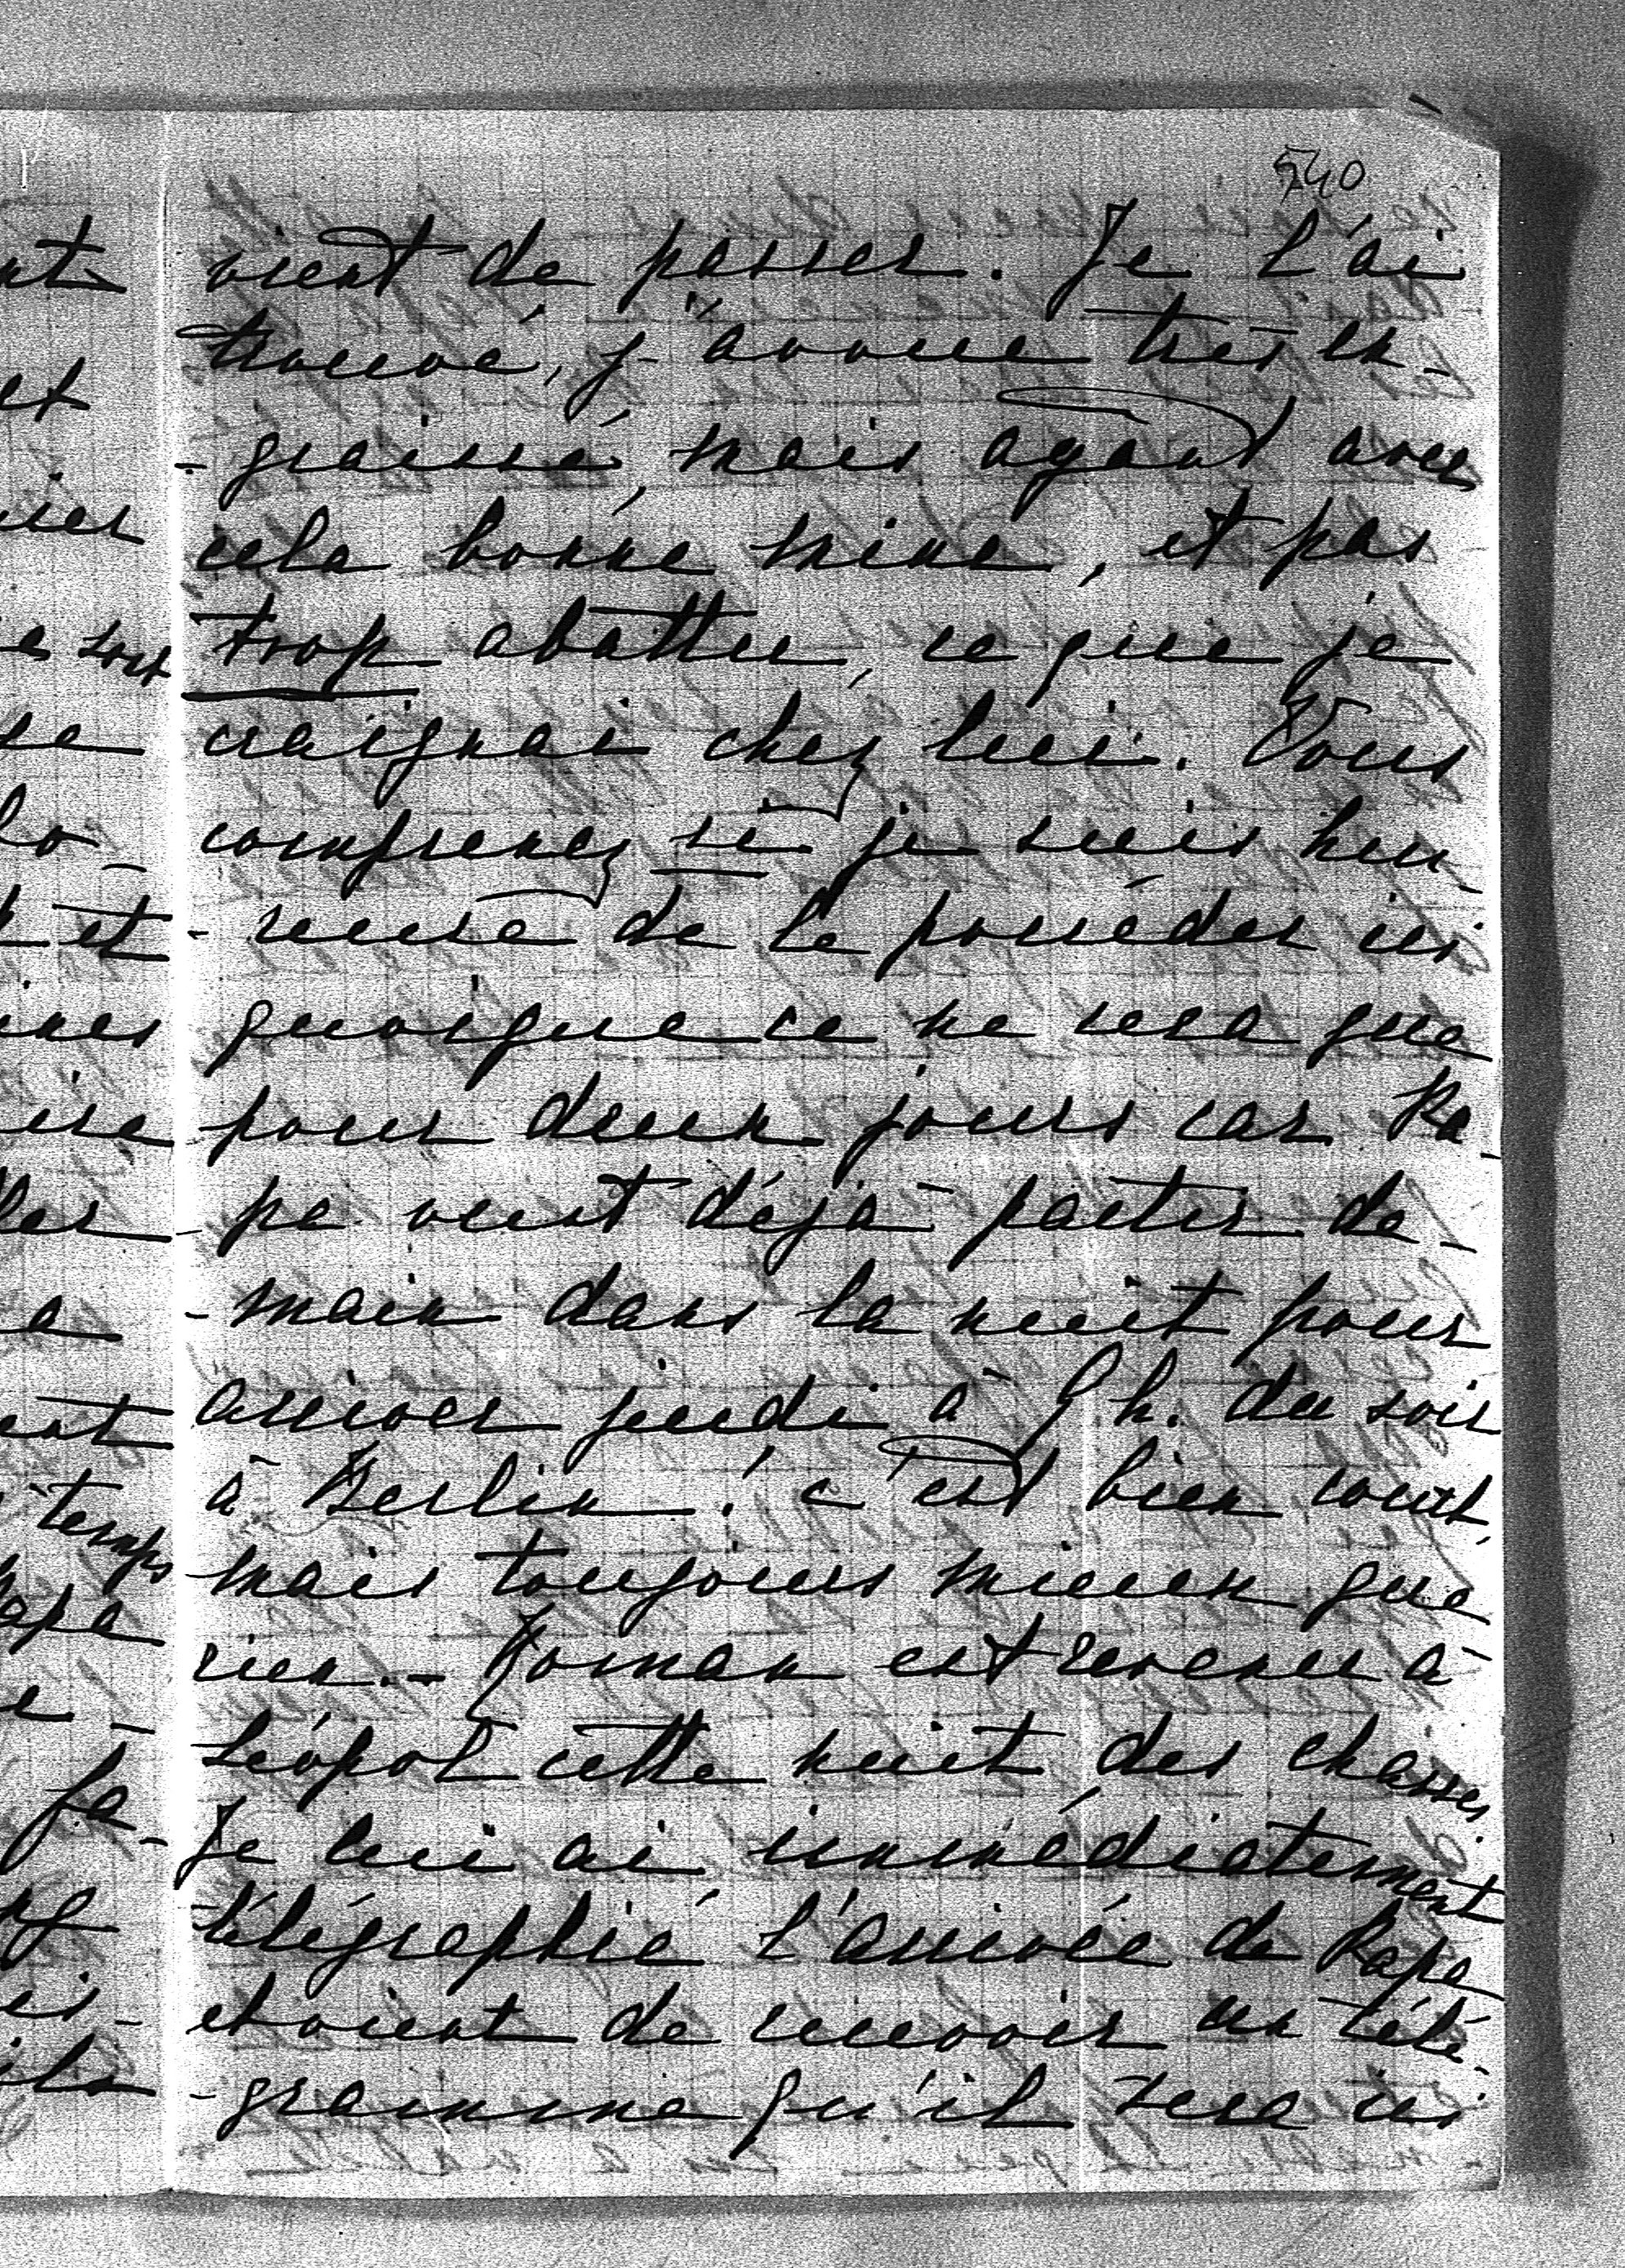 540
vient de passer. Je l'ai
trouvé, j'avoue très en-
-graissé, mais ayant avec
cela bonne mine, et pas
trop abattu, ce que je
craignais chez lui. Vous
comprenez si je suis heu-
-reuse de le posséder ici
quoique ce ne sera que
pour deux jours car Pa-
-pa veut déjà partir de-
-main dans la nuit pour
arriver jeudi à 9 h. du soir
à Berlin. c'est bien court,
mais toujours mieux que
rien. - Roman est revenu à
Léopol cette nuit, des chasses.
Je lui ai immédiatement
télégraphié l'arrivée de Papa
et vient de recevoir un télé-
-gramme qu'il sera ici